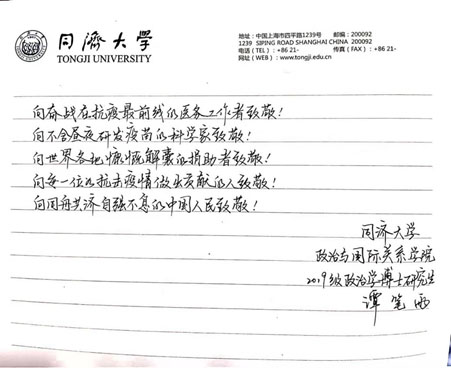 同濟大學
TONGJI UNIVERSITY
地址：中国上海市四平路1239号 邮编：200092
1239 SIPING ROAD SHANGHAI CHINA 200092
电话（TEL）：+86 21- 传真（FAX）：+86 21-
网址（WEB）：www.tongji.edu.cn
向奋战在抗疫最前线的医务工作者致敬！
向不舍昼夜研发疫苗的科学家致敬！
向世界各地慷慨解囊的捐助者致敬！
向每一位为抗击疫情做出贡献的人致敬！
向同舟共济自强不息的中国人民致敬！
同济大学
政治与国际关系学院
2019级政治学博士研究生
谭笔雨